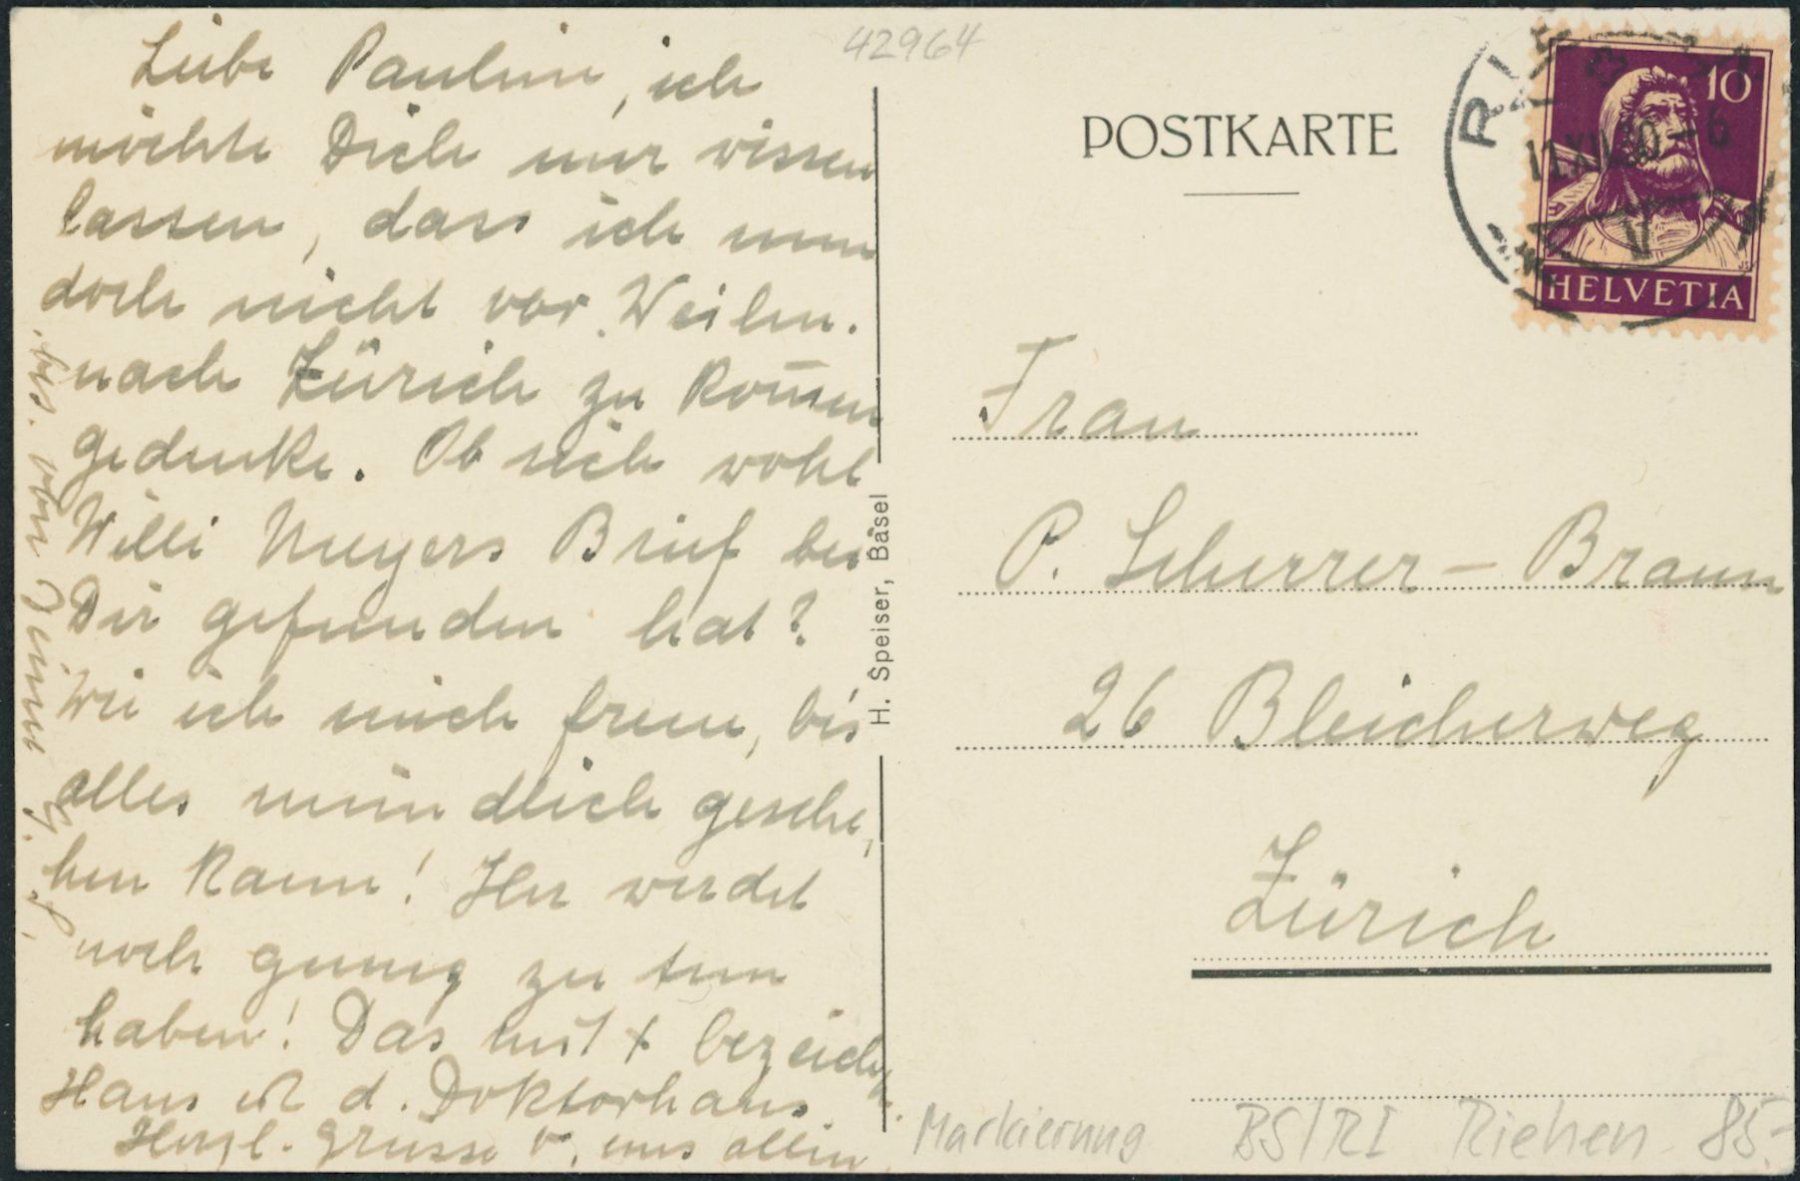 42964
Liebe Pauline, ich
möchte Dich nur wissen
lassen, dass ich nun
doch nicht vor Weihn.
nach Zürich zu kom̄en
gedenke. Ob sich wohl
Willi Meyers Brief bei
Dir gefunden hat?
Wie ich mich freue, bis
alles mündlich gesche,
hen kann! Ihr werdet
noch genug zu tun
haben! Das mit x bezeich.
Haus ist d. Doktorhaus.
Herzl. Grüsse v. uns allen
bes. von Deiner
H. Speiser, Basel
POSTKARTE
10
HELVETIA
RIEHEN
11.XII.30-6
V
Frau
P. Scherrer-Braun
26 Bleicherweg
Zürich
Markierung BS/RI Riehen 85.-